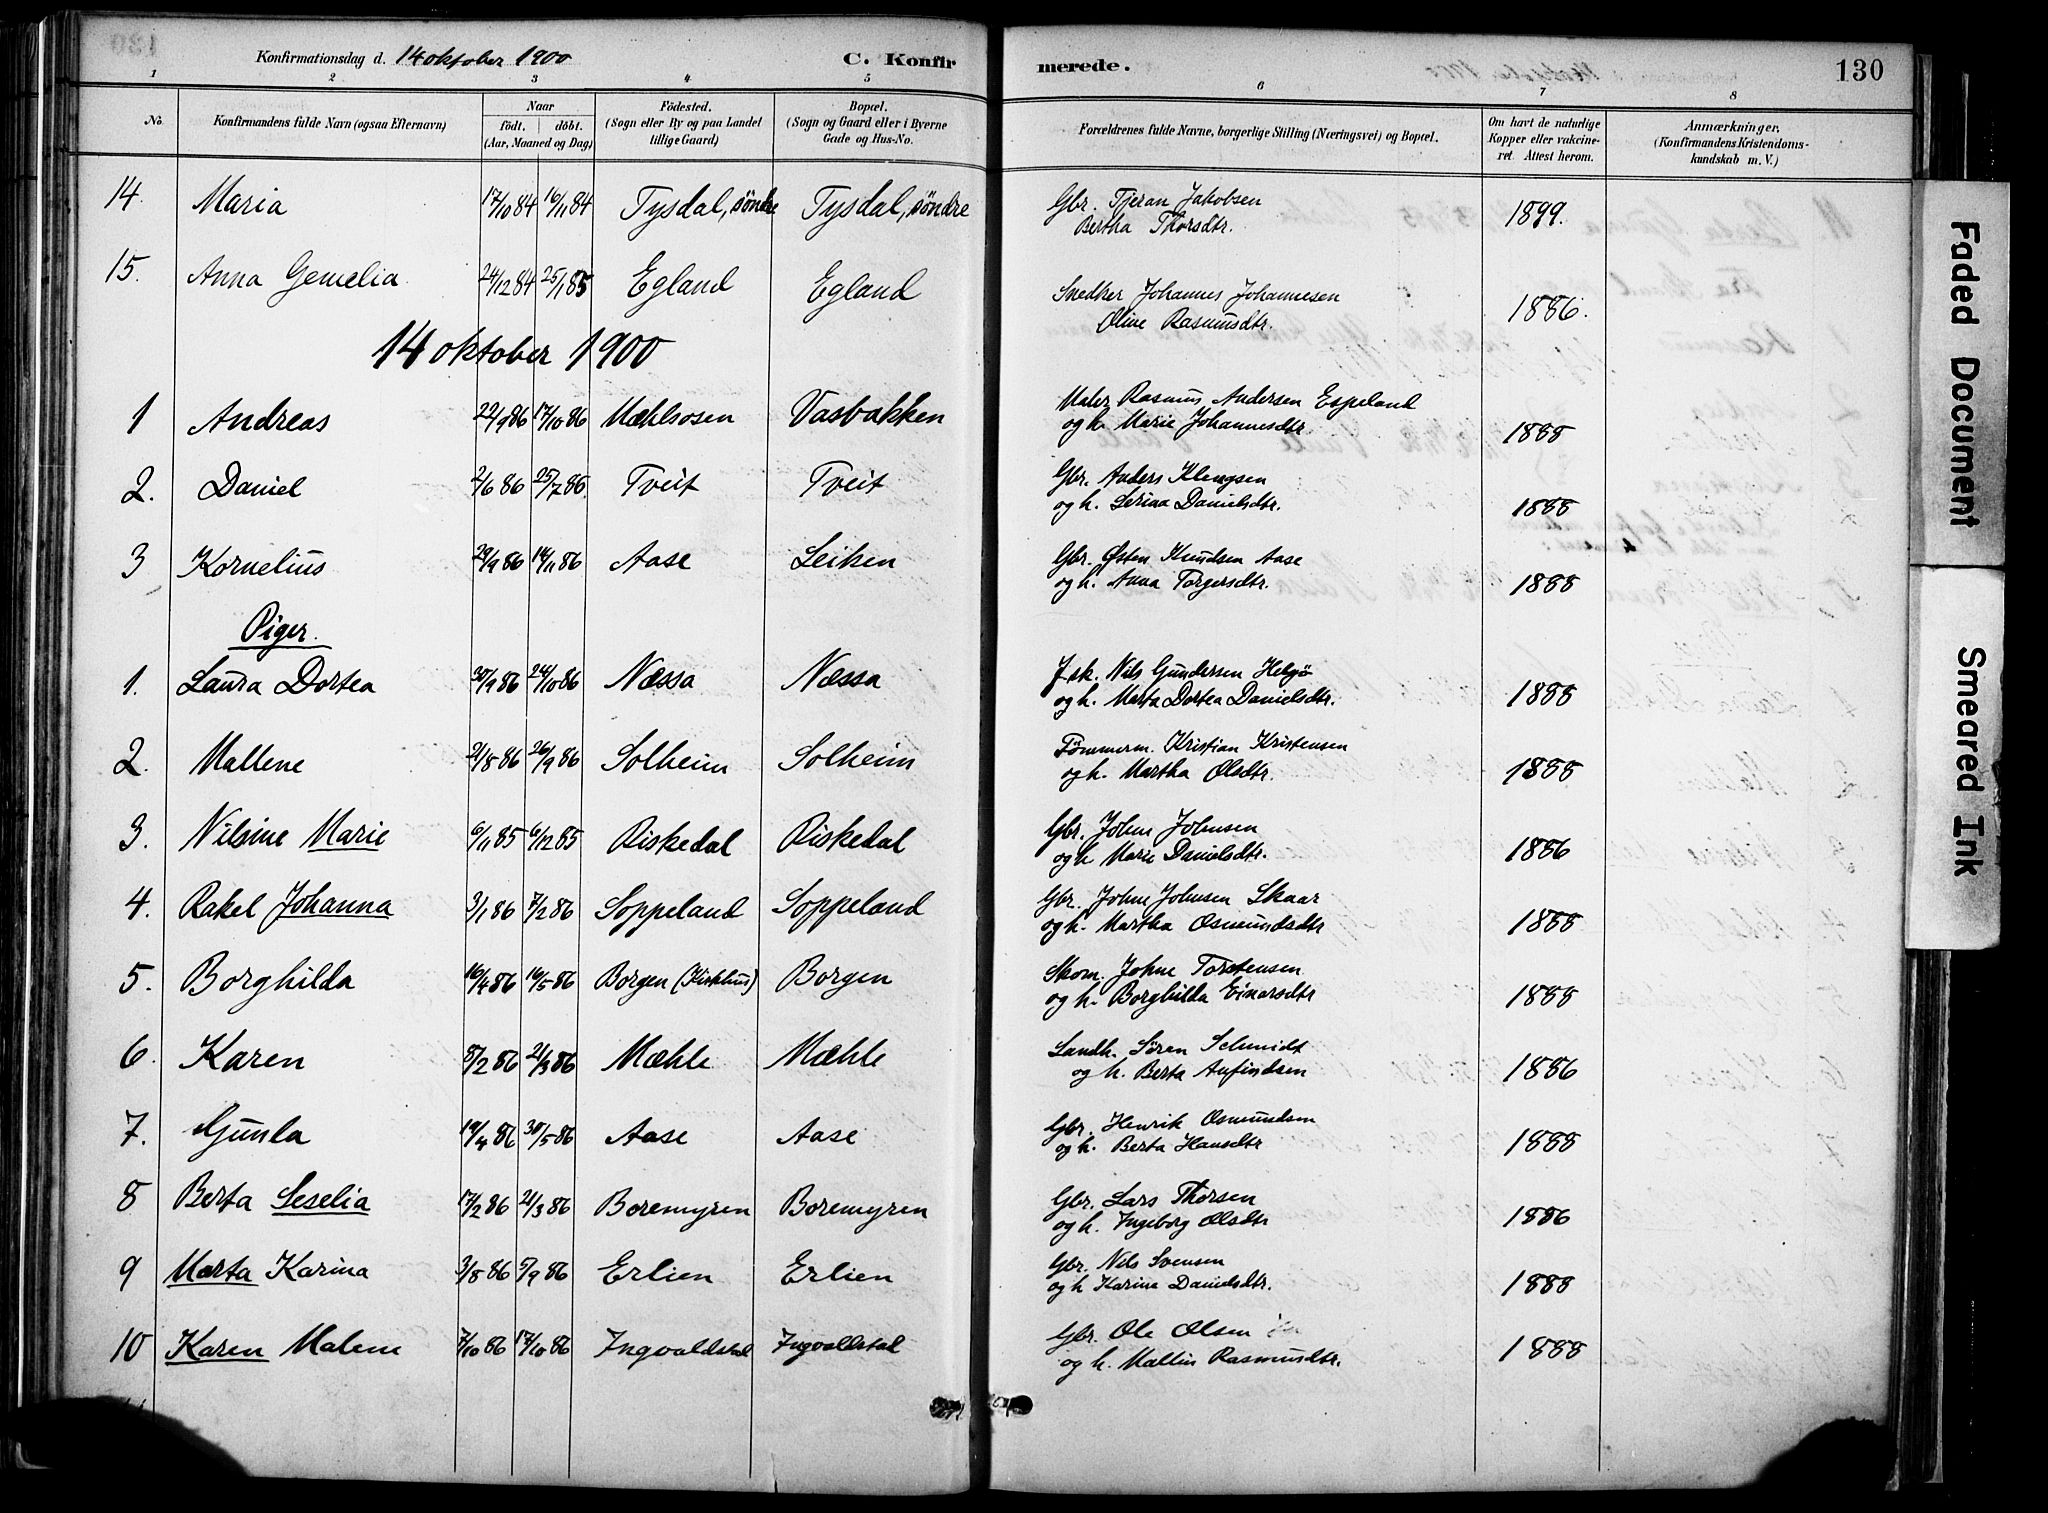 Konfirmationsdag d. 14 oktober 1900 C. Konfirmerede. 130
1 2 3 4 5 6 7 8
No. Konfirmandens fulde Navn (ogsaa Efternavn) Naar født. døbt. (Aar, Maaned og Dag) Fødested. (Sogn eller By og paa Landet tillige Gaard) Bopæl. (Sogn og Gaard eller i Byerne Gade og Hus-No. Forældrenes fulde Navne, borgerlige Stilling (Næringsvei) og Bopæl. Om havt de naturlige Kopper eller vakcineret. Attest herom. Anmærkninger. (Konfirmandens Kristendomskundskab m. V.)
14. Maria 17/10 84 16/11 84 Tysdal, söndre Tysdal, söndre Gbr. Tjeran Jakobsen 1899.
Bertha Thorsdtr.
15. Anna Gemelia 24/12 84 25/1 85 Egland Egland Snedker Johannes Johannesen 1886.
Oline Rasmusdtr.
14 oktober 1900
1 Andreas 22/9 86 17/10 86 Mæhlsosen Vasbakken Maler Rasmus Andersen Espeland 1888
og h. Marie Johannesdtr
2. Daniel 2/6 86 25/7 86 Tveit Tveit Gbr. Anders Klengsen 1888
og h. Serina Danielsdtr.
3 Kornelius 29/9 86 14/11 86 Aase Leiken Gbr. Østen Knudsen Aase 1888
og h. Anna Torgersdtr.
Piger.
1. Laura Dortea 30/9 86 24/10 86 Næssa Næssa J sk. Nils Gundersen Helgø 1888
og h. Marta Dortea Danielsdtr.
2. Mallene 21/8 86 26/9 86 Solheim Solheim Tømmerm. Kristian Kristensen 1888
og h. Martha Olsdtr.
3. Nilsine Marie 6/11 85 6/12 85 Riskedal Riskedal Gbr. John Johnsen 1886
og h Marie Danielsdtr.
4. Rakel Johanna 3/1 86 7/2 86 Soppeland Soppeland Gbr. Johne Johnsen Skaar 1888
og h. Martha Osmundsdtr
5. Borghilda 16/4 86 16/5 86 Borgen (Kirkhus) Borgen Skom. Johne Torstensen 1888
og h. Borghilda Einarsdtr
6. Karen 8/2 86 21/3 86 Mæhle Mæhle Landh. Søren Schmidt 1886
og h. Berta Anfindsen
7. Gunla 19/4 86 30/5 86 Aase Aase Gbr. Henrik Osmundsen 1888
og h. Berta Hansdtr
8 Berta Seselia 17/2 86 21/3 86 Boremyren Boremyren Gbr. Lars Thorsen 1886
og h. Ingeborg Olsdtr
9 Marta Karina 3/8 86 5/9 86 Erlien Erlien Gbr. Nils Svensen 1888
og h Karine Danielsdtr.
10 Karen Malene 7/10 86 17/10 86 Ingvaldstal Ingvaldstal Gbr. Ole Olsen 1888
og h. Mallin Rasmusdtr.
Faded Document
Smeared Ink